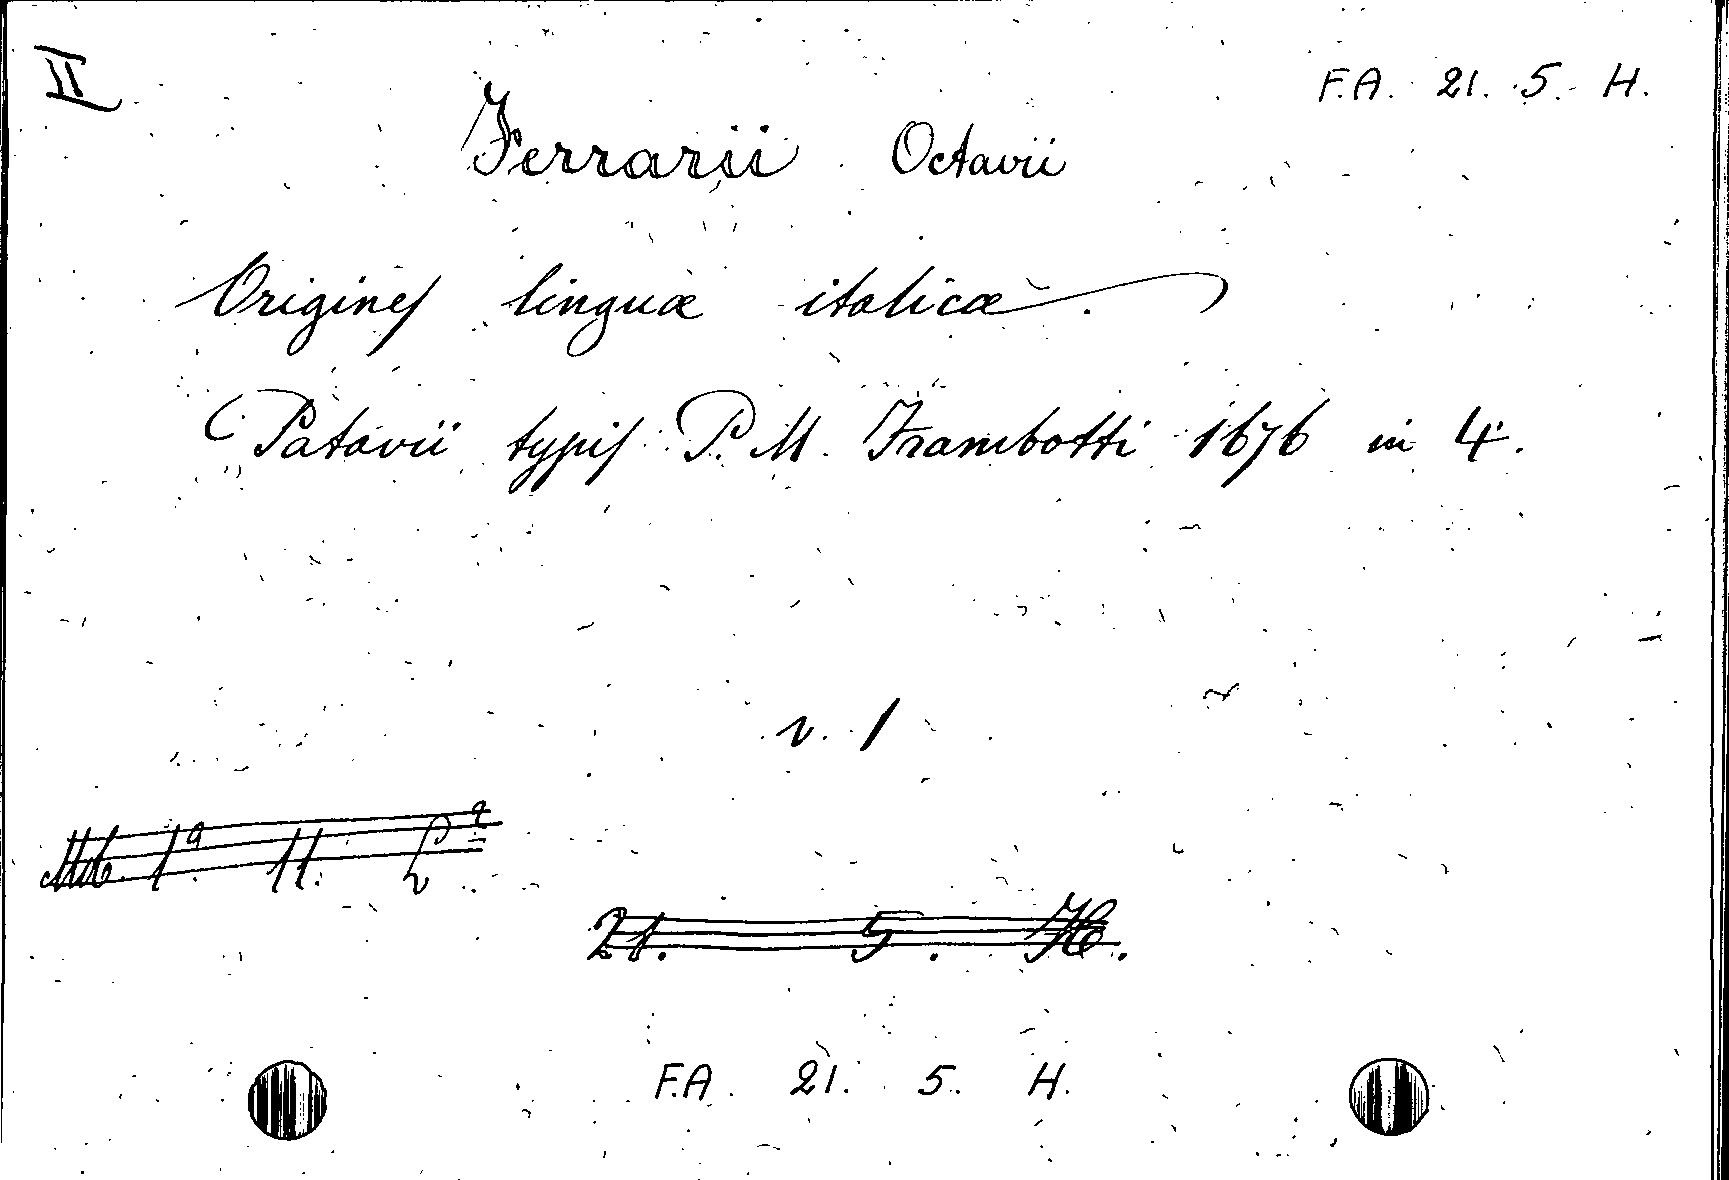 II
F.A. 21. 5. H.
Ferrarii Octavii
Origines linguæ italicæ.
Patavii typis P. M. Frambotti 1676 in 4.
v. 1
21. 5. H.
F.A. 21. 5. H.